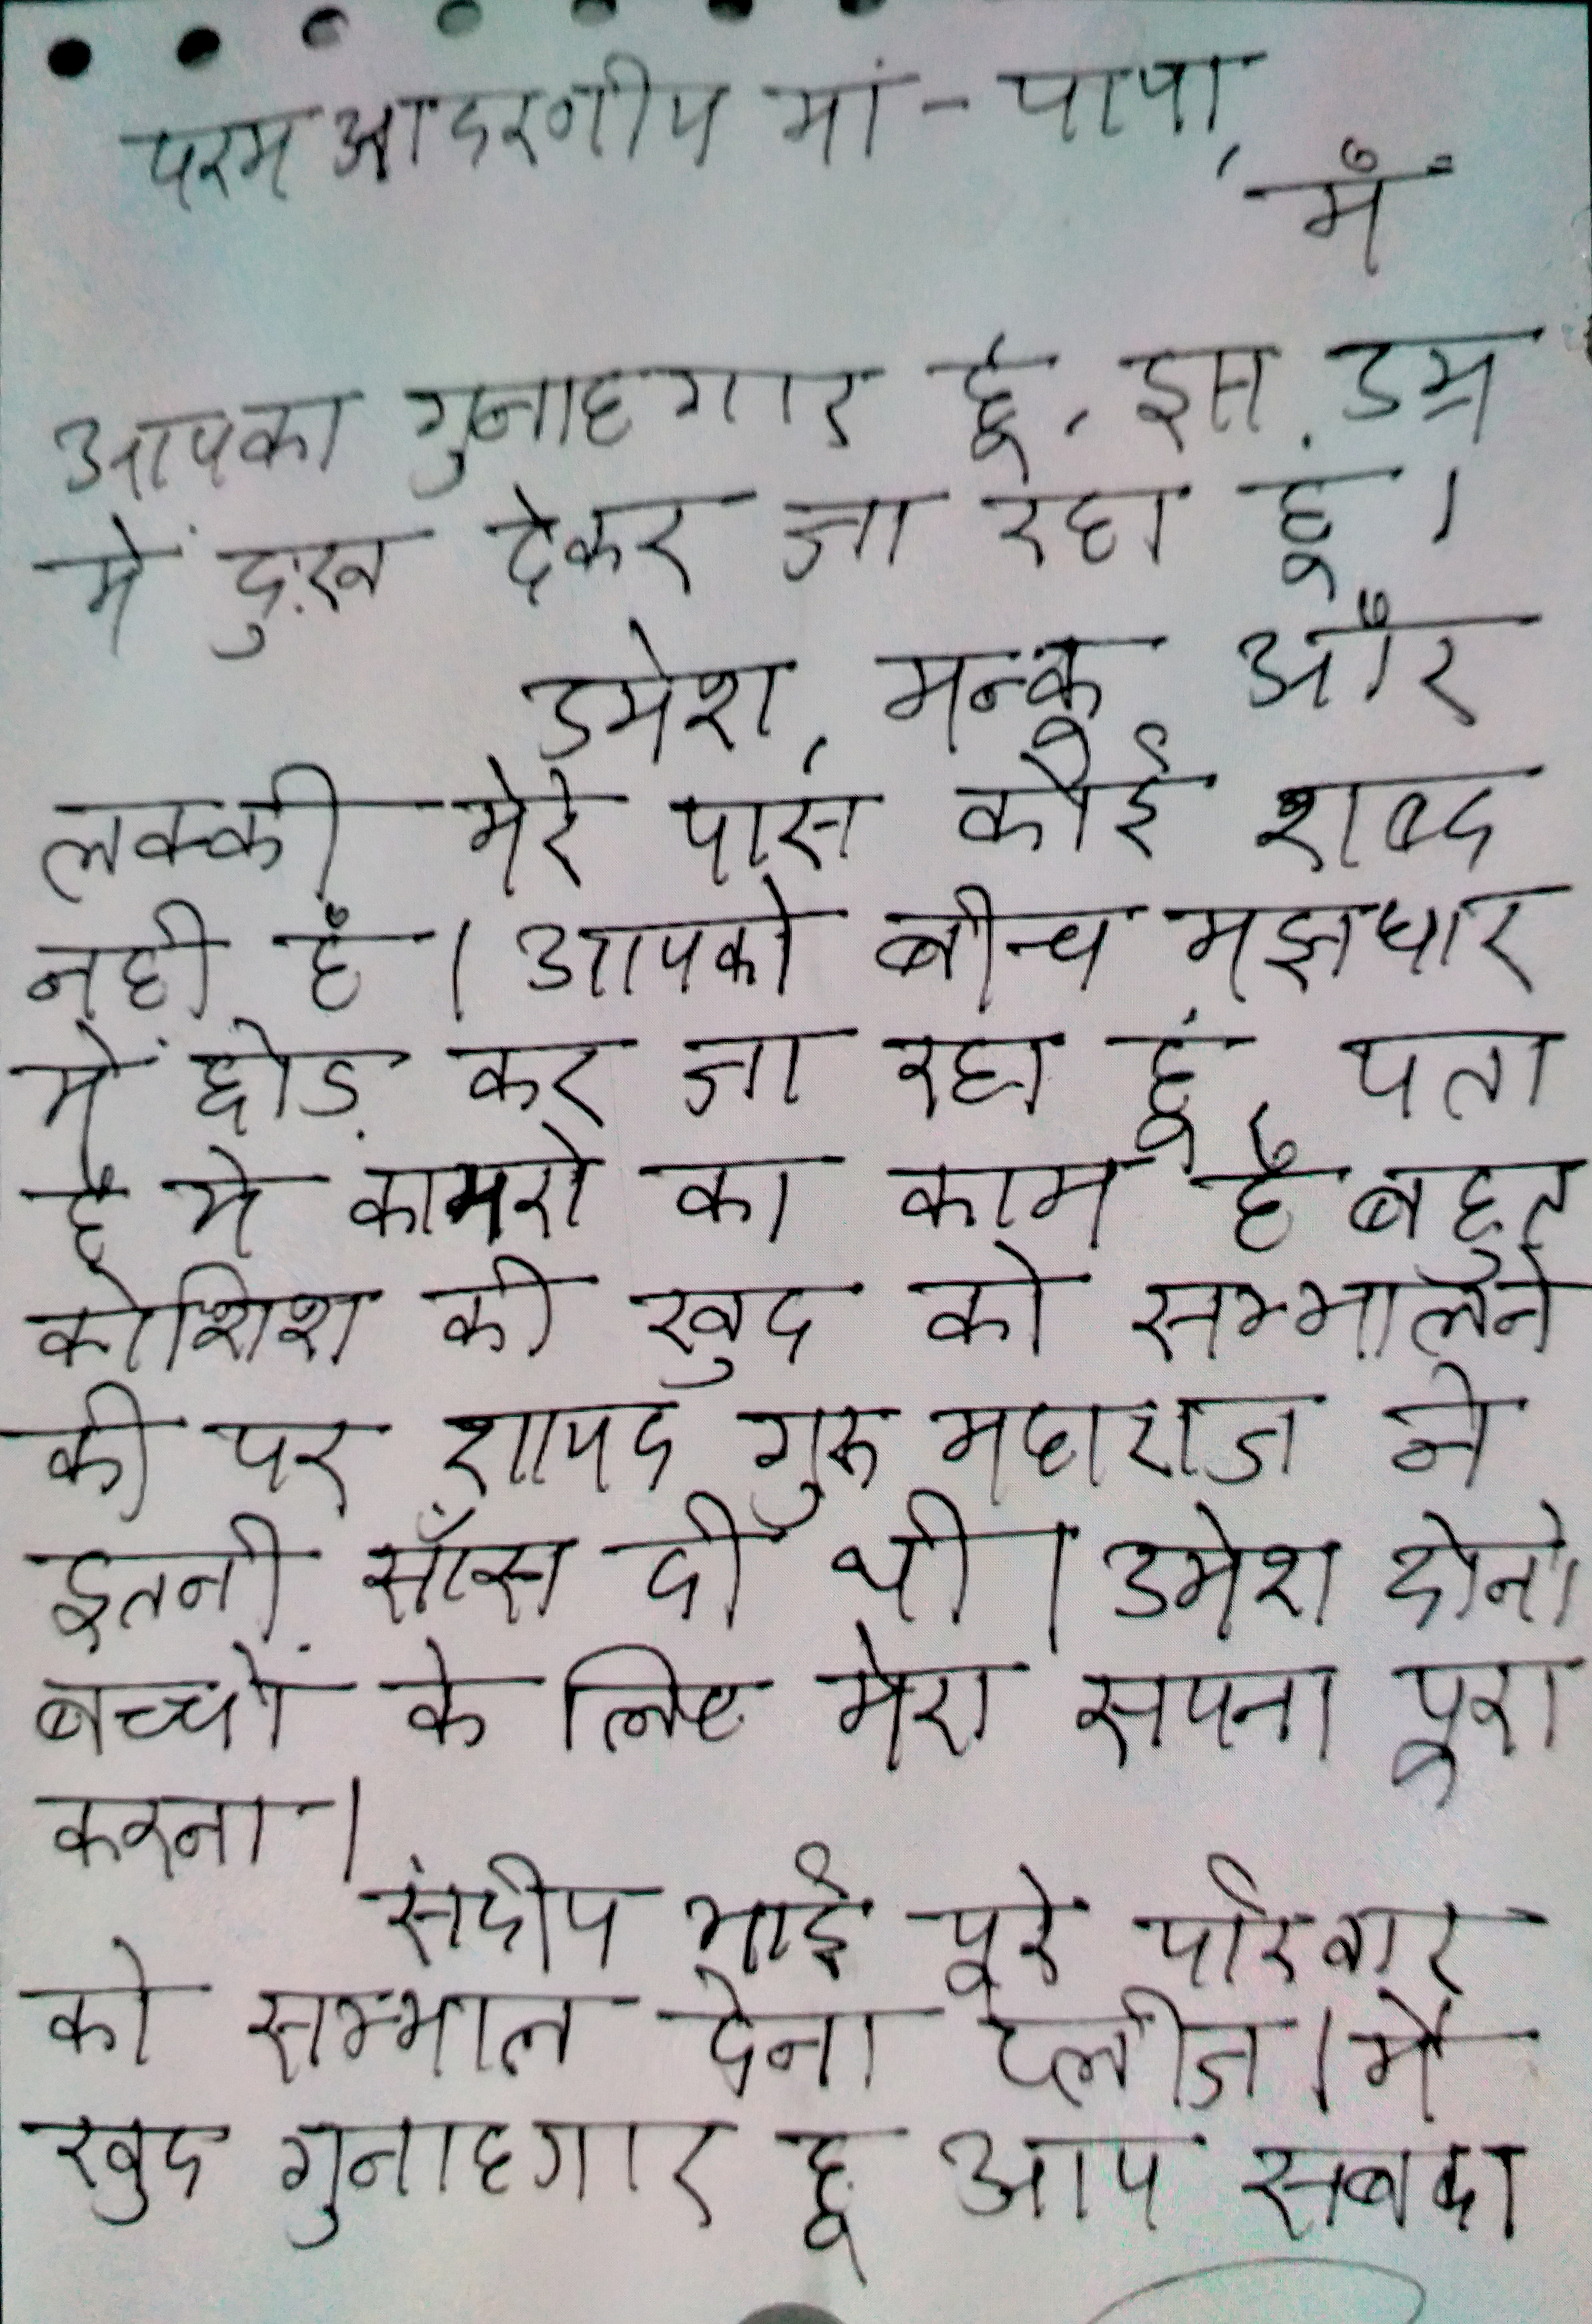 परम आदरणीय मां - पापा,
मैं
आपका गुनाहगार हूं, इस उम्र
में दुःख देकर जा रहा हूं।
उमेश, मन्कू और
लक्की मेरे पास कोई शब्द
नही है। आपको बीच मझधार
में छोड़ कर जा रहा हूं, पता
है ये कायरो का काम है बहुत
कोशिश की खुद को सम्भालने
की पर शायद गुरु महाराज ने
इतनी साँस दी थी। उमेश दोनो
बच्चों के लिए मेरा सपना पूरा
करना।
संदीप भाई पूरे परिवार
को सम्भाल देना प्लीज। मै
खुद गुनाहगार हू आप सबका